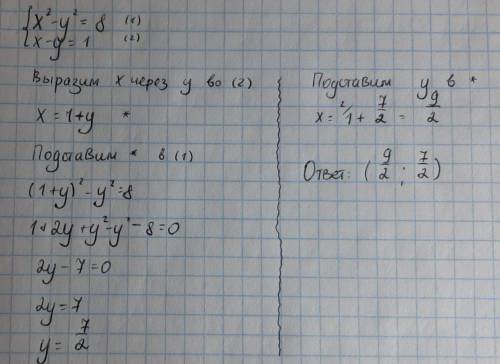 {x²-y² = 8 (1)
{x-y = 1 (2)
Выразим x через y во (2)
x = 1+y *
Подставим * в (1)
(1+y)² - y² = 8
1+2y+y²-y²-8=0
2y-7=0
2y=7
y = 7/2
Подставим y в *
x = ²/1 + 7/2 = 9/2
Ответ: (9/2 ; 7/2)